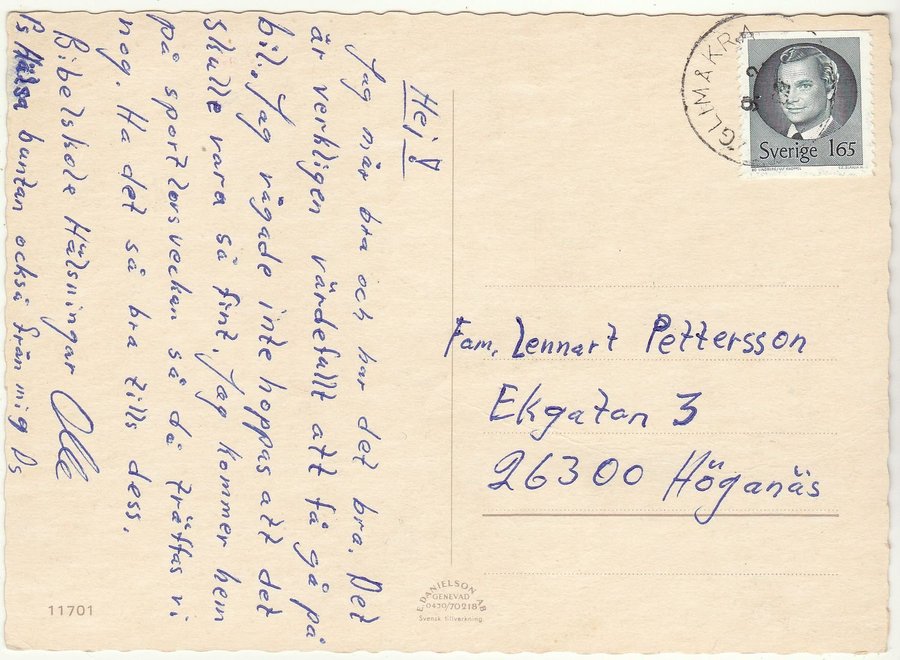 Hej!
Jag mår bra och har det bra. Det
är verkligen värdefullt att få gå på
bil. Jag vågade inte hoppas att det
skulle vara så fint. Jag kommer hem
på sportlovsveckan så då träffas vi
nog. Ha det så bra tills dess.
Bibelskole Hälsningar Olle
Ps Hälsa buntan också från mig Ds
GLIMÅKRA
Sverige 165
Fam. Lennart Pettersson
Ekgatan 3
26300 Höganäs
E. DANIELSON AB
GENEVAD
0430/70218
Svensk tillverkning.
11701